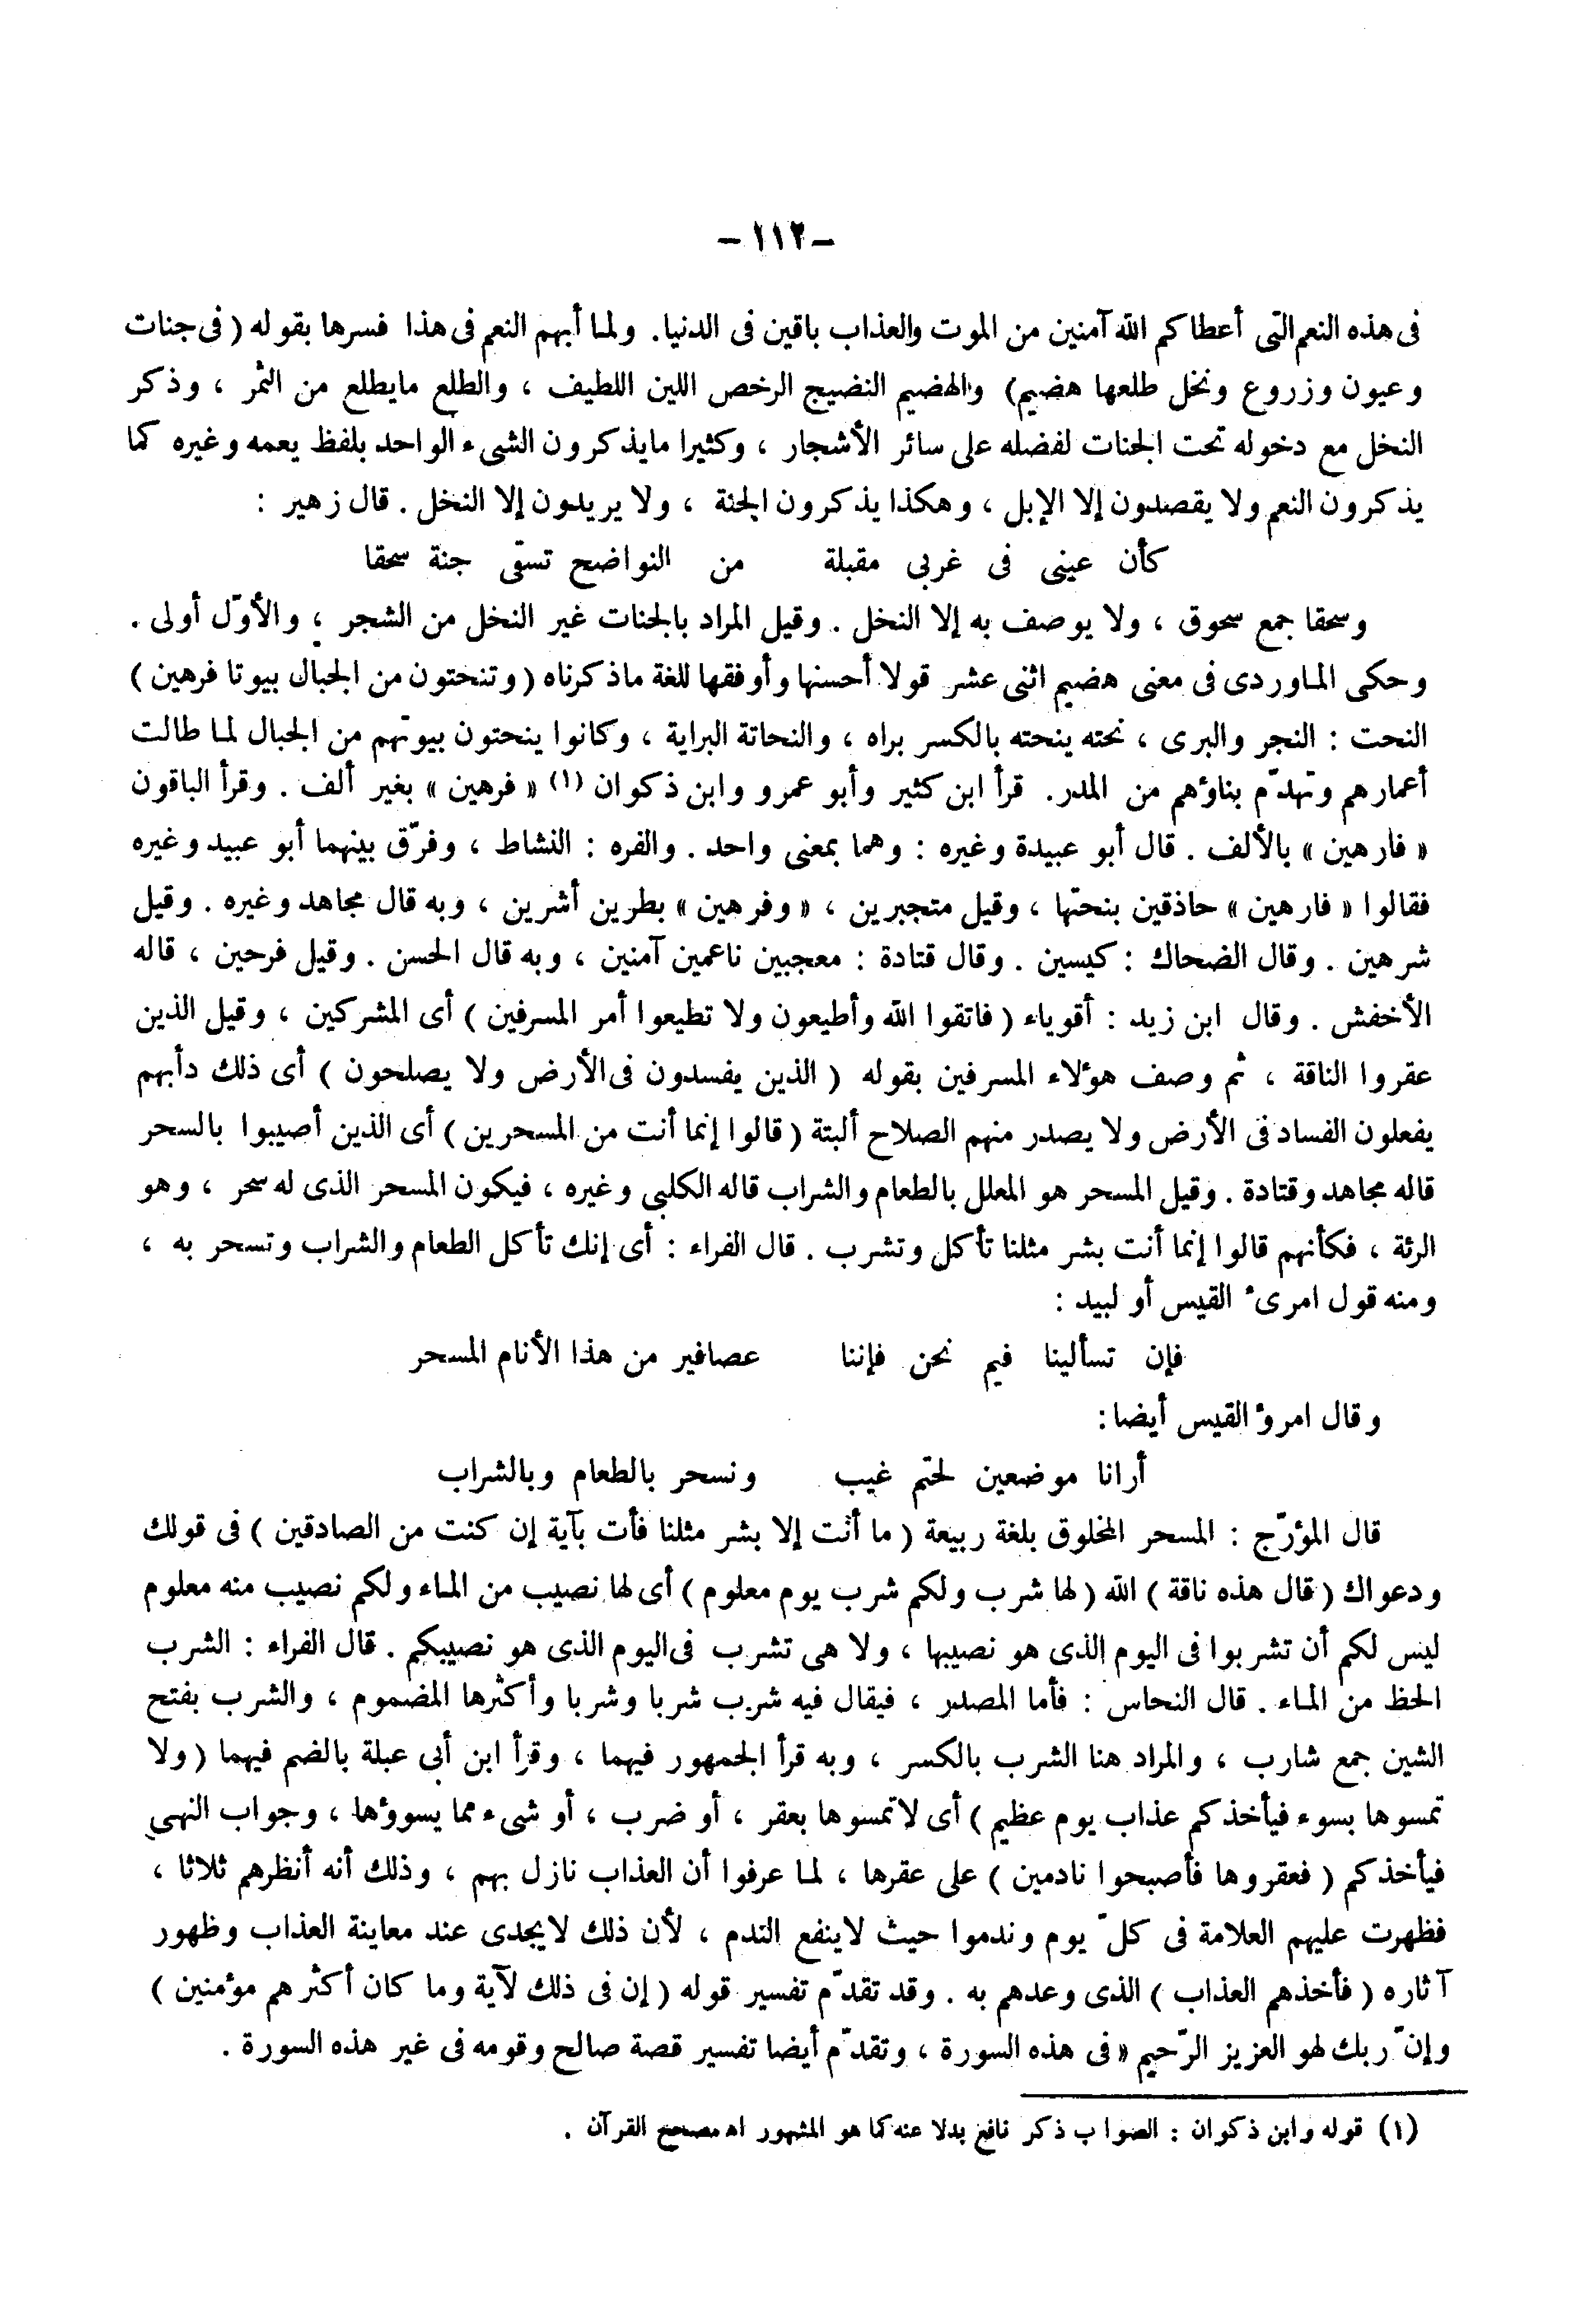 - ١١٢ -
فى هذه النعم التى أعطاكم الله آمنين من الموت والعذاب باقين فى الدنيا. ولما أبهم النعم فى هذا فسرها بقوله ( فى جنات
وعيون وزروع ونخل طلعها هضيم) والهضيم النضيج الرخص اللين اللطيف ، والطلع مايطلع من الثمر ، وذكر
النخل مع دخوله تحت الجنات لفضله على سائر الأشجار ، وكثيرا مايذكرون الشىء الواحد بلفظ يعمه وغيره كما
يذكرون النعم ولا يقصدون إلا الإبل ، وهكذا يذكرون الجنة ، ولا يريدون إلا النخل . قال زهير :
كأن عينى فى غربى مقبلة من النواضح تسقى جنة سحقا
وسحقا جمع سحوق ، ولا يوصف به إلا النخل . وقيل المراد بالجنات غير النخل من الشجر ، والأوّل أولى .
وحكى الماوردى فى معنى هضيم اثنى عشر قولا أحسنها وأوفقها للغة ماذكرناه ( وتنحتون من الجبال بيوتا فرهين )
النحت : النجر والبرى ، نحته ينحته بالكسر براه ، والنحاتة البراية ، وكانوا ينحتون بيوتهم من الجبال لما طالت
أعمارهم وتهدّم بناؤهم من المدر. قرأ ابن كثير وأبو عمرو وابن ذكوان (١) « فرهين » بغير ألف . وقرأ الباقون
« فارهين » بالألف . قال أبو عبيدة وغيره : وهما بمعنى واحد . والفره : النشاط ، وفرّق بينهما أبو عبيد وغيره
فقالوا « فارهين » حاذقين بنحتها ، وقيل متجبرين ، « وفرهين » بطرين أشرين ، وبه قال مجاهد وغيره . وقيل
شرهين . وقال الضحاك : كيسين . وقال قتادة : معجبين ناعمين آمنين ، وبه قال الحسن . وقيل فرحين ، قاله
الأخفش . وقال ابن زيد : أقوياء ( فاتقوا الله وأطيعون ولا تطيعوا أمر المسرفين ) أى المشركين ، وقيل الذين
عقروا الناقة ، ثم وصف هؤلاء المسرفين بقوله ( الذين يفسدون فى الأرض ولا يصلحون ) أى ذلك دأبهم
يفعلون الفساد فى الأرض ولا يصدر منهم الصلاح ألبتة ( قالوا إنما أنت من المسحرين ) أى الذين أصيبوا بالسحر
قاله مجاهد وقتادة . وقيل المسحر هو المعلل بالطعام والشراب قاله الكلبى وغيره ، فيكون المسحر الذى له سحر ، وهو
الرئة ، فكأنهم قالوا إنما أنت بشر مثلنا تأكل وتشرب . قال الفراء : أى إنك تأكل الطعام والشراب وتسحر به ،
ومنه قول امرئ القيس أو لبيد :
فإن تسألينا فيم نحن فإننا عصافير من هذا الأنام المسحر
وقال امرؤ القيس أيضا:
أرانا موضعين لحتم غيب ونسحر بالطعام وبالشراب
قال المؤرّج : المسحر المخلوق بلغة ربيعة ( ما أنت إلا بشر مثلنا فأت بآية إن كنت من الصادقين ) فى قولك
ودعواك ( قال هذه ناقة ) الله ( لها شرب ولكم شرب يوم معلوم ) أى لها نصيب من الماء ولكم نصيب منه معلوم
ليس لكم أن تشربوا فى اليوم الذى هو نصيبها ، ولا هى تشرب فى اليوم الذى هو نصيبكم . قال الفراء : الشرب
الحظ من الماء . قال النحاس : فأما المصدر ، فيقال فيه شرب شربا وشربا وأكثرها المضموم ، والشرب بفتح
الشين جمع شارب ، والمراد هنا الشرب بالكسر ، وبه قرأ الجمهور فيهما ، وقرأ ابن أبى عبلة بالضم فيهما ( ولا
تمسوها بسوء فيأخذكم عذاب يوم عظيم ) أى لاتمسوها بعقر ، أو ضرب ، أو شىء مما يسوؤها ، وجواب النهى
فيأخذكم ( فعقروها فأصبحوا نادمين ) على عقرها ، لما عرفوا أن العذاب نازل بهم ، وذلك أنه أنظرهم ثلاثا ،
فظهرت عليهم العلامة فى كلّ يوم وندموا حيث لاينفع الندم ، لأن ذلك لايجدى عند معاينة العذاب وظهور
آثاره ( فأخذهم العذاب ) الذى وعدهم به . وقد تقدّم تفسير قوله ( إن فى ذلك لآية وما كان أكثرهم مؤمنين )
وإنّ ربك لهو العزيز الرّحيم « فى هذه السورة ، وتقدّم أيضا تفسير قصة صالح وقومه فى غير هذه السورة .
(١) قوله وابن ذكوان : الصواب ذكر نافع بدلا عنه كما هو المشهور اه مصحح القرآن .